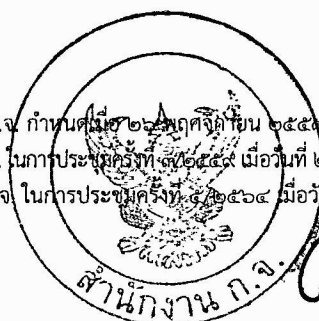 .จ. กำหนดเมื่อ ๒๖ พฤศจิกายน ๒๕๕๘
. ในการประชุมครั้งที่ ๓/๒๕๕๙ เมื่อวันที่ ๒
จ. ในการประชุมครั้งที่ ๕/๒๕๖๔ เมื่อวั
สำนักงาน ก.จ.